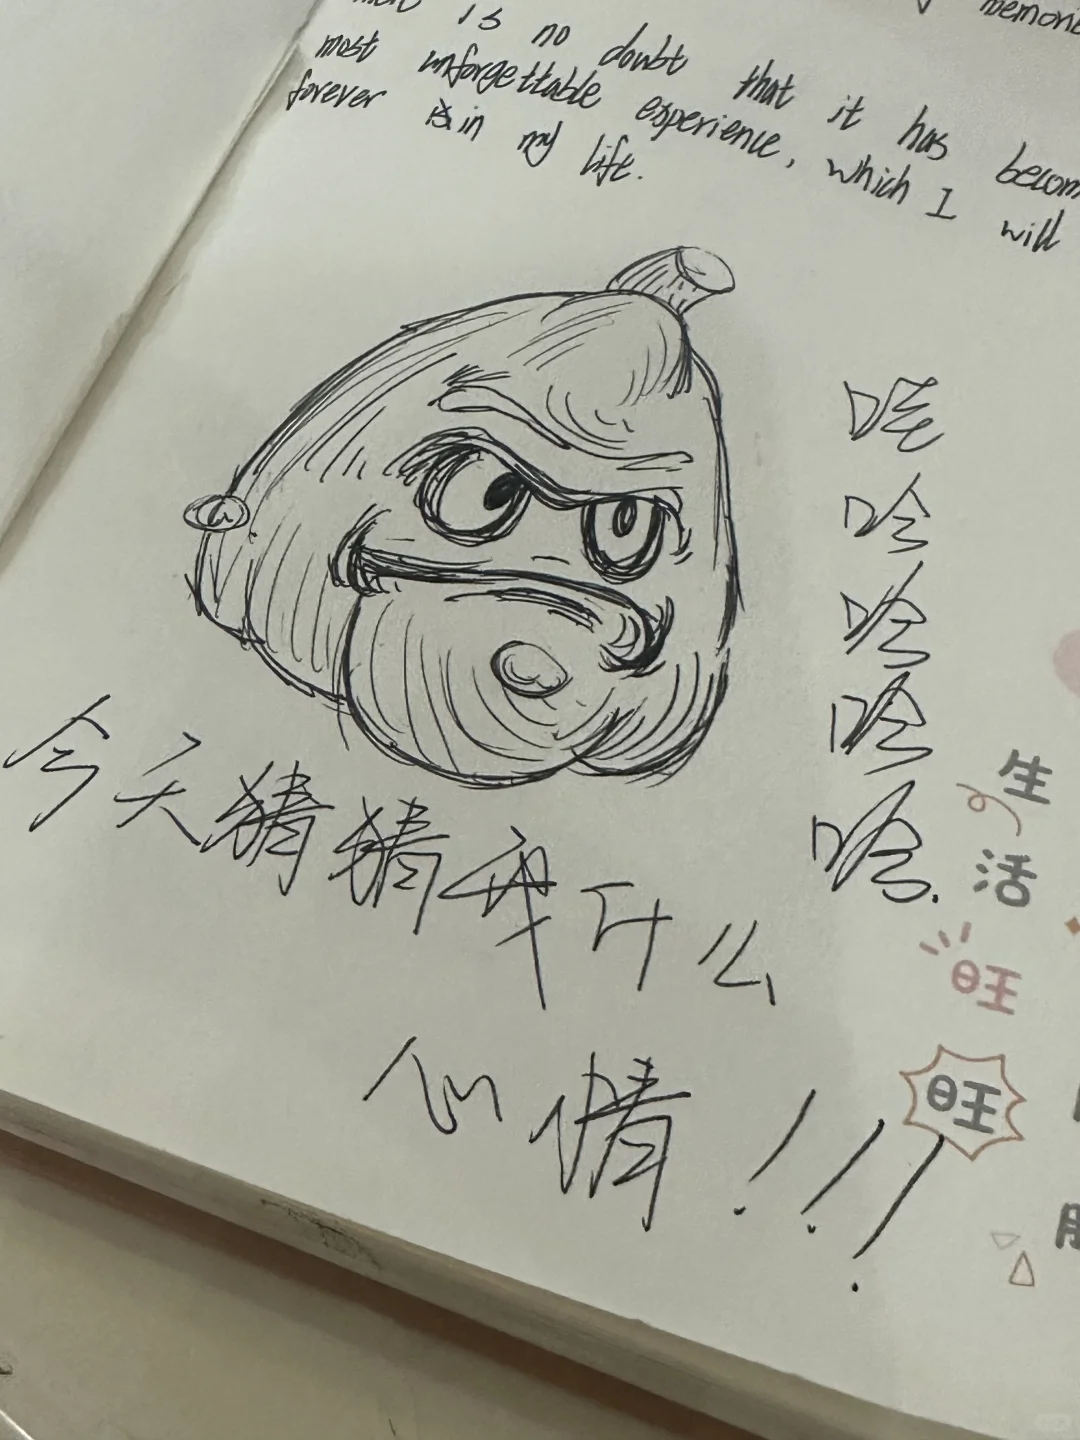 is no doubt that it has becom
most unforgettable experience, which I will
forever in my life.
哈
哈
哈
哈
今天猜猜我什么
心情!!!
生
活
旺
旺